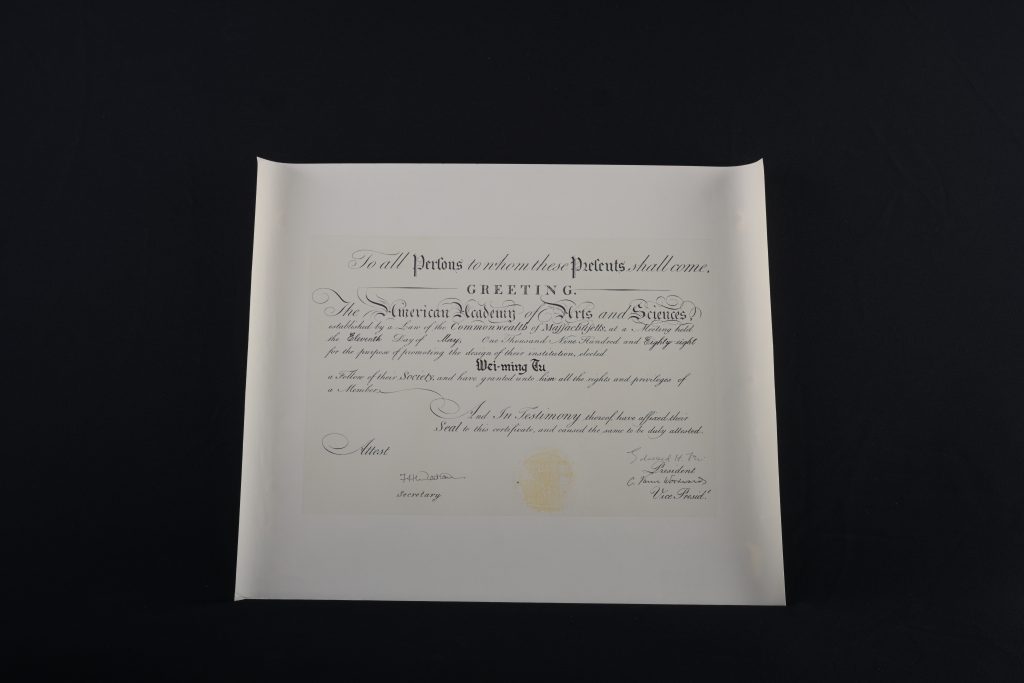 To all Persons to whom these Presents shall come,
GREETING.
The American Academy of Arts and Sciences,
established by a Law of the Commonwealth of Massachusetts, at a Meeting held
the Eleventh Day of May, One Thousand Nine Hundred and Eighty eight
for the purpose of promoting the design of their institution, elected
Wei-ming Tu
a Fellow of their Society, and have granted unto him all the rights and privileges of
a Member.
And In Testimony thereof, have affixed their
Seal to this certificate, and caused the same to be duly attested.
Attest
Edward H.
President
C. Vann Woodward
Secretary
Vice Presid.t